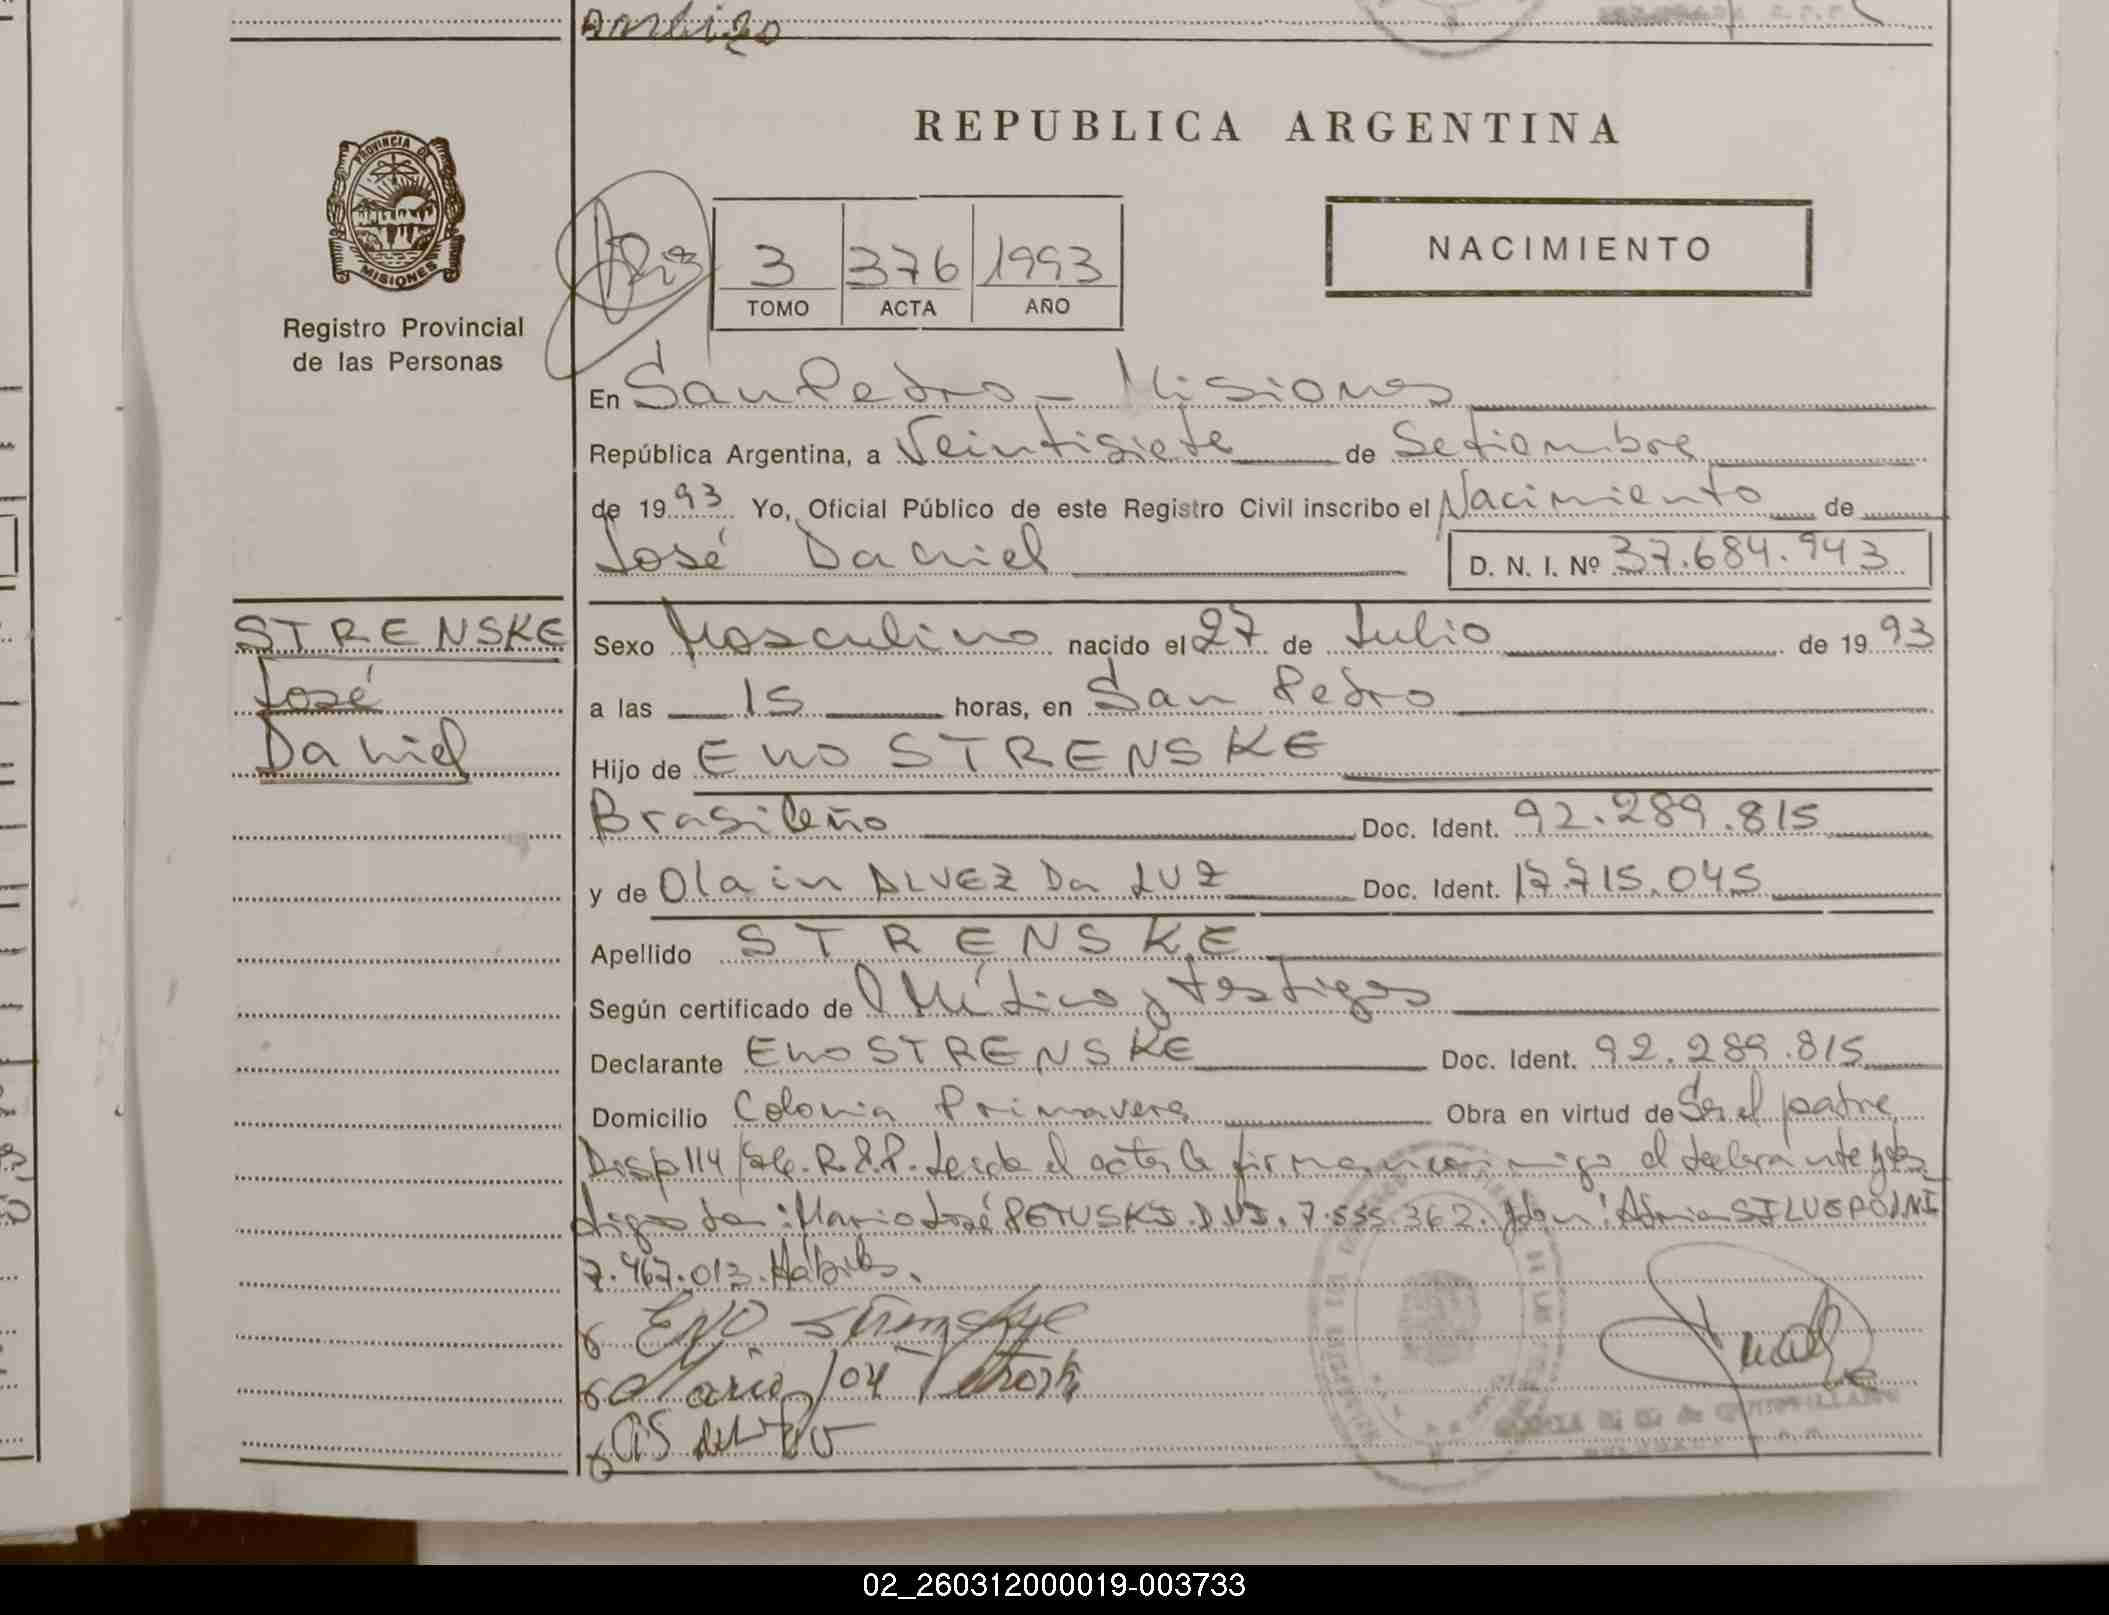 REPUBLICA ARGENTINA
PROVINCIA DE
MISIONES
Registro Provincial
de las Personas
3 376 1993
TOMO ACTA AÑO
NACIMIENTO
En San Pedro - Misiones
República Argentina, a Veintisiete de Setiembre
de 1993 Yo, Oficial Público de este Registro Civil inscribo el Nacimiento de
José Daniel D. N. I. Nº 37.684.943
STRENSKE
José
Daniel
Sexo Masculino nacido el 27 de Julio de 1993
a las 15 horas, en San Pedro
Hijo de Eno STRENSKE
Brasileño Doc. Ident. 92.289.815
y de Olain ALVEZ Da LUZ Doc. Ident. 17.715.045
Apellido STRENSKE
Según certificado de Médico y testigos
Declarante Eno STRENSKE Doc. Ident. 92.289.815
Domicilio Colonia Primavera Obra en virtud de Ser el padre
Disp 114 R.P.P. Leida el acta la firman conmigo el declarante y tes
tigos : Mario José PETUSKI D.N.I. 7.555.362. Adrian
7.467.013. Hábiles.
ENO
Mario José
02_260312000019-003733